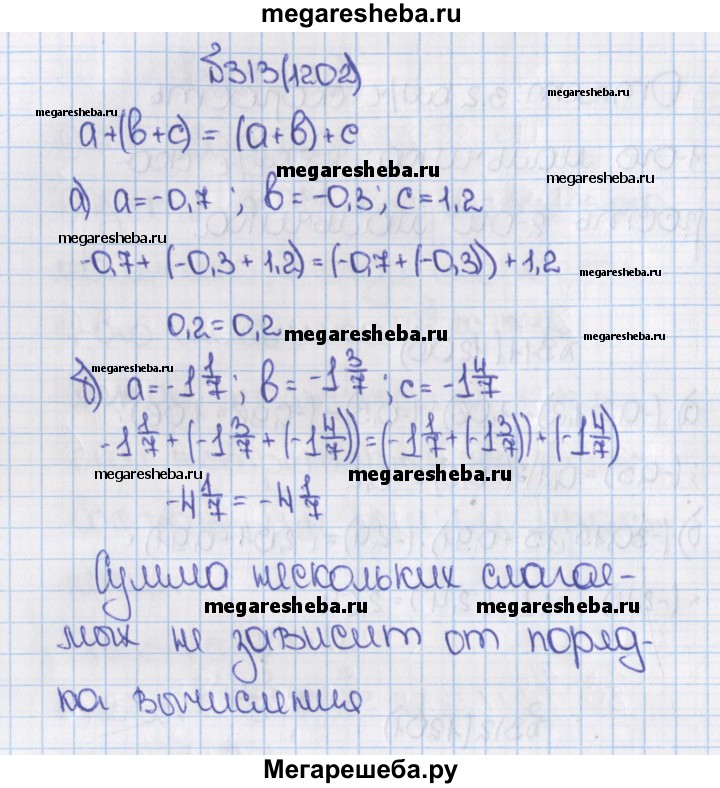 megaresheba.ru
№313(1202)
megaresheba.ru
megaresheba.ru
a+(в+с) = (а+в)+с
megaresheba.ru
megaresheba.ru
а) a=-0,7 ; в=-0,3; с=1,2
megaresheba.ru
-0,7+(-0,3+1,2)=(-0,7+(-0,3))+1,2
megaresheba.ru
0,2=0,2
megaresheba.ru
megaresheba.ru
megaresheba.ru
б) a=-1 1/7; в=-1 3/7; с=-1 4/7
-1 1/7+(-1 3/7+(-1 4/7))=(-1 1/7+(-1 3/7))+(-1 4/7)
megaresheba.ru
megaresheba.ru
-4 1/7=-4 1/7
Сумма нескольких слагае-
megaresheba.ru
megaresheba.ru
мых не зависит от поряд-
ка вычисления
Мегарешеба.ру